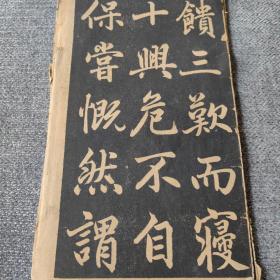 饋三歎而寢
十興危不自
保嘗慨然謂